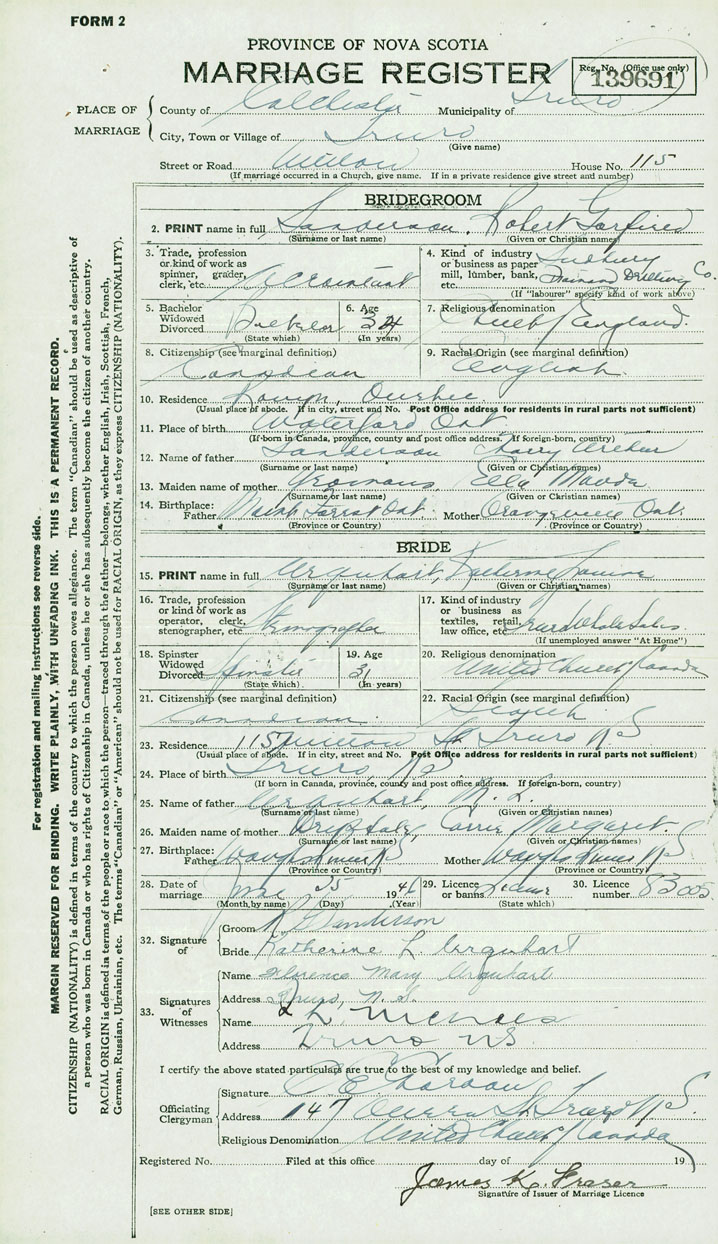 FORM 2
PROVINCE OF NOVA SCOTIA
MARRIAGE REGISTER
Reg. No. (Office use only)
139691
PLACE OF MARRIAGE
County of Colchester Municipality of Truro
City, Town or Village of Truro
(Give name)
Street or Road House No. 115
(If marriage occurred in a Church, give name. If in a private residence give street and number)
BRIDEGROOM
2. PRINT name in full Sanderson, Robert
(Surname or last name) (Given or Christian names)
3. Trade, profession or kind of work as spinner, grader, clerk, etc. Accountant
4. Kind of industry or business as paper mill, lumber, bank, etc. Sudbury Diamond Drilling Co.
(If "labourer" specify kind of work above)
5. Bachelor Widowed Divorced Bachelor
(State which)
6. Age 34
(In years)
7. Religious denomination Church of England.
8. Citizenship (see marginal definition) Canadian
9. Racial Origin (see marginal definition) English.
10. Residence Rouyn, Quebec.
(Usual place of abode. If in city, street and No. Post Office address for residents in rural parts not sufficient)
11. Place of birth Waterford Ont
(If born in Canada, province, county and post office address. If foreign-born, country)
12. Name of father Sanderson Harry Arthur
(Surname or last name) (Given or Christian names)
13. Maiden name of mother Yeomans, Ella Mauda
(Surname or last name) (Given or Christian names)
14. Birthplace: Father Ont. Mother Orangeville Ont.
(Province or Country) (Province or Country)
BRIDE
15. PRINT name in full Urquhart, Katherine Louise
(Surname or last name) (Given or Christian names)
16. Trade, profession or kind of work as operator, clerk, stenographer, etc. Stenographer
17. Kind of industry or business as textiles, retail, law office, etc.
(If unemployed answer "At Home")
18. Spinster Widowed Divorced Spinster
(State which)
19. Age 31
(In years)
20. Religious denomination United Church Canada
21. Citizenship (see marginal definition) Canadian
22. Racial Origin (see marginal definition) Scotch
23. Residence 115 St. Truro NS
(Usual place of abode. If in city, street and No. Post Office address for residents in rural parts not sufficient)
24. Place of birth Truro, NS.
(If born in Canada, province, county and post office address. If foreign-born, country)
25. Name of father Urquhart, L.
(Surname or last name) (Given or Christian names)
26. Maiden name of mother Carrie Margaret.
(Surname or last name) (Given or Christian names)
27. Birthplace: Father Waughs River NS Mother Waughs River NS
(Province or Country) (Province or Country)
28. Date of marriage 25 194
(Month, by name) (Day) (Year)
29. Licence or banns License
(State which)
30. Licence number 83005
32. Signature of
Groom Sanderson
Bride Katherine L. Urquhart
33. Signatures of Witnesses
Name Florence Mary Urquhart
Address Truro, N.S.
Name
Address Truro NS
I certify the above stated particulars are true to the best of my knowledge and belief.
Officiating Clergyman
Signature
Address 147 Queen St. Truro NS.
Religious Denomination United Church Canada
Registered No. Filed at this office day of 19
James K. Fraser
Signature of Issuer of Marriage Licence
[SEE OTHER SIDE]
For registration and mailing instructions see reverse side.
MARGIN RESERVED FOR BINDING. WRITE PLAINLY, WITH UNFADING INK. THIS IS A PERMANENT RECORD.
CITIZENSHIP (NATIONALITY) is defined in terms of the country to which the person owes allegiance. The term "Canadian" should be used as descriptive of
a person who was born in Canada or who has rights of Citizenship in Canada, unless he or she has subsequently become the citizen of another country.
RACIAL ORIGIN is defined in terms of the people or race to which the person—traced through the father—belongs, whether English, Irish, Scottish, French,
German, Russian, Ukrainian, etc. The terms "Canadian" or "American" should not be used for RACIAL ORIGIN, as they express CITIZENSHIP (NATIONALITY).